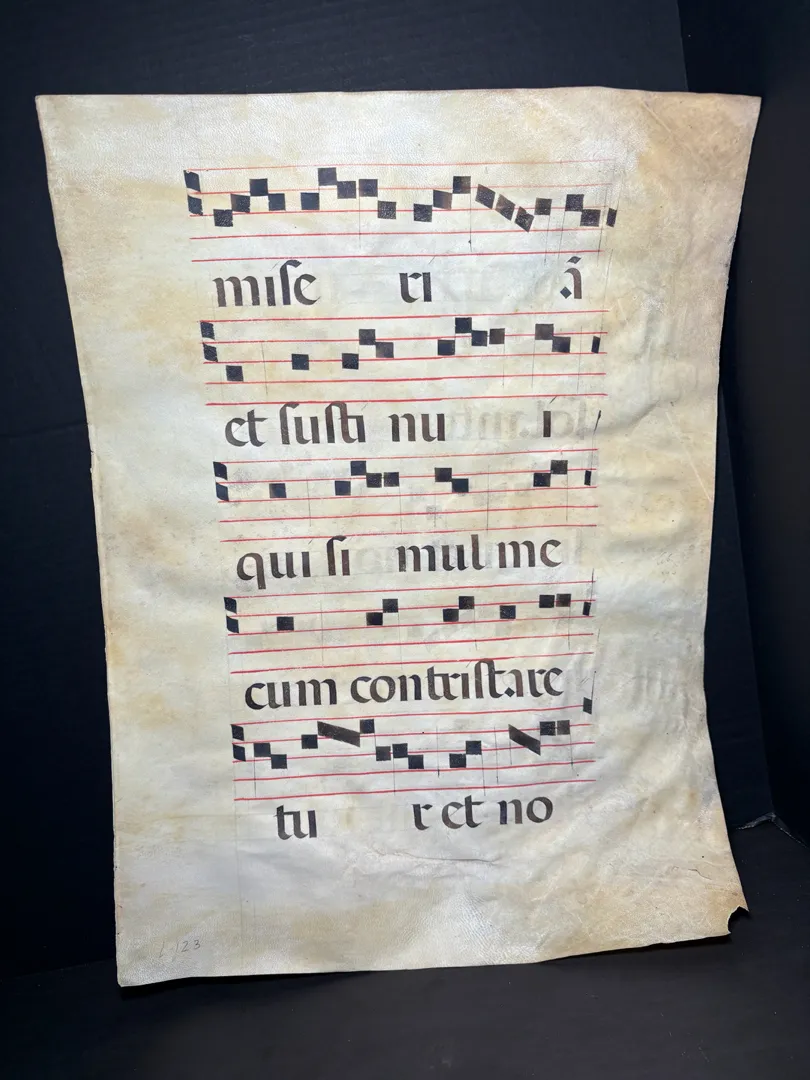 miſe ri ā
et ſuſti nu i
qui ſi mul me
cum contriſtare
tu r et no